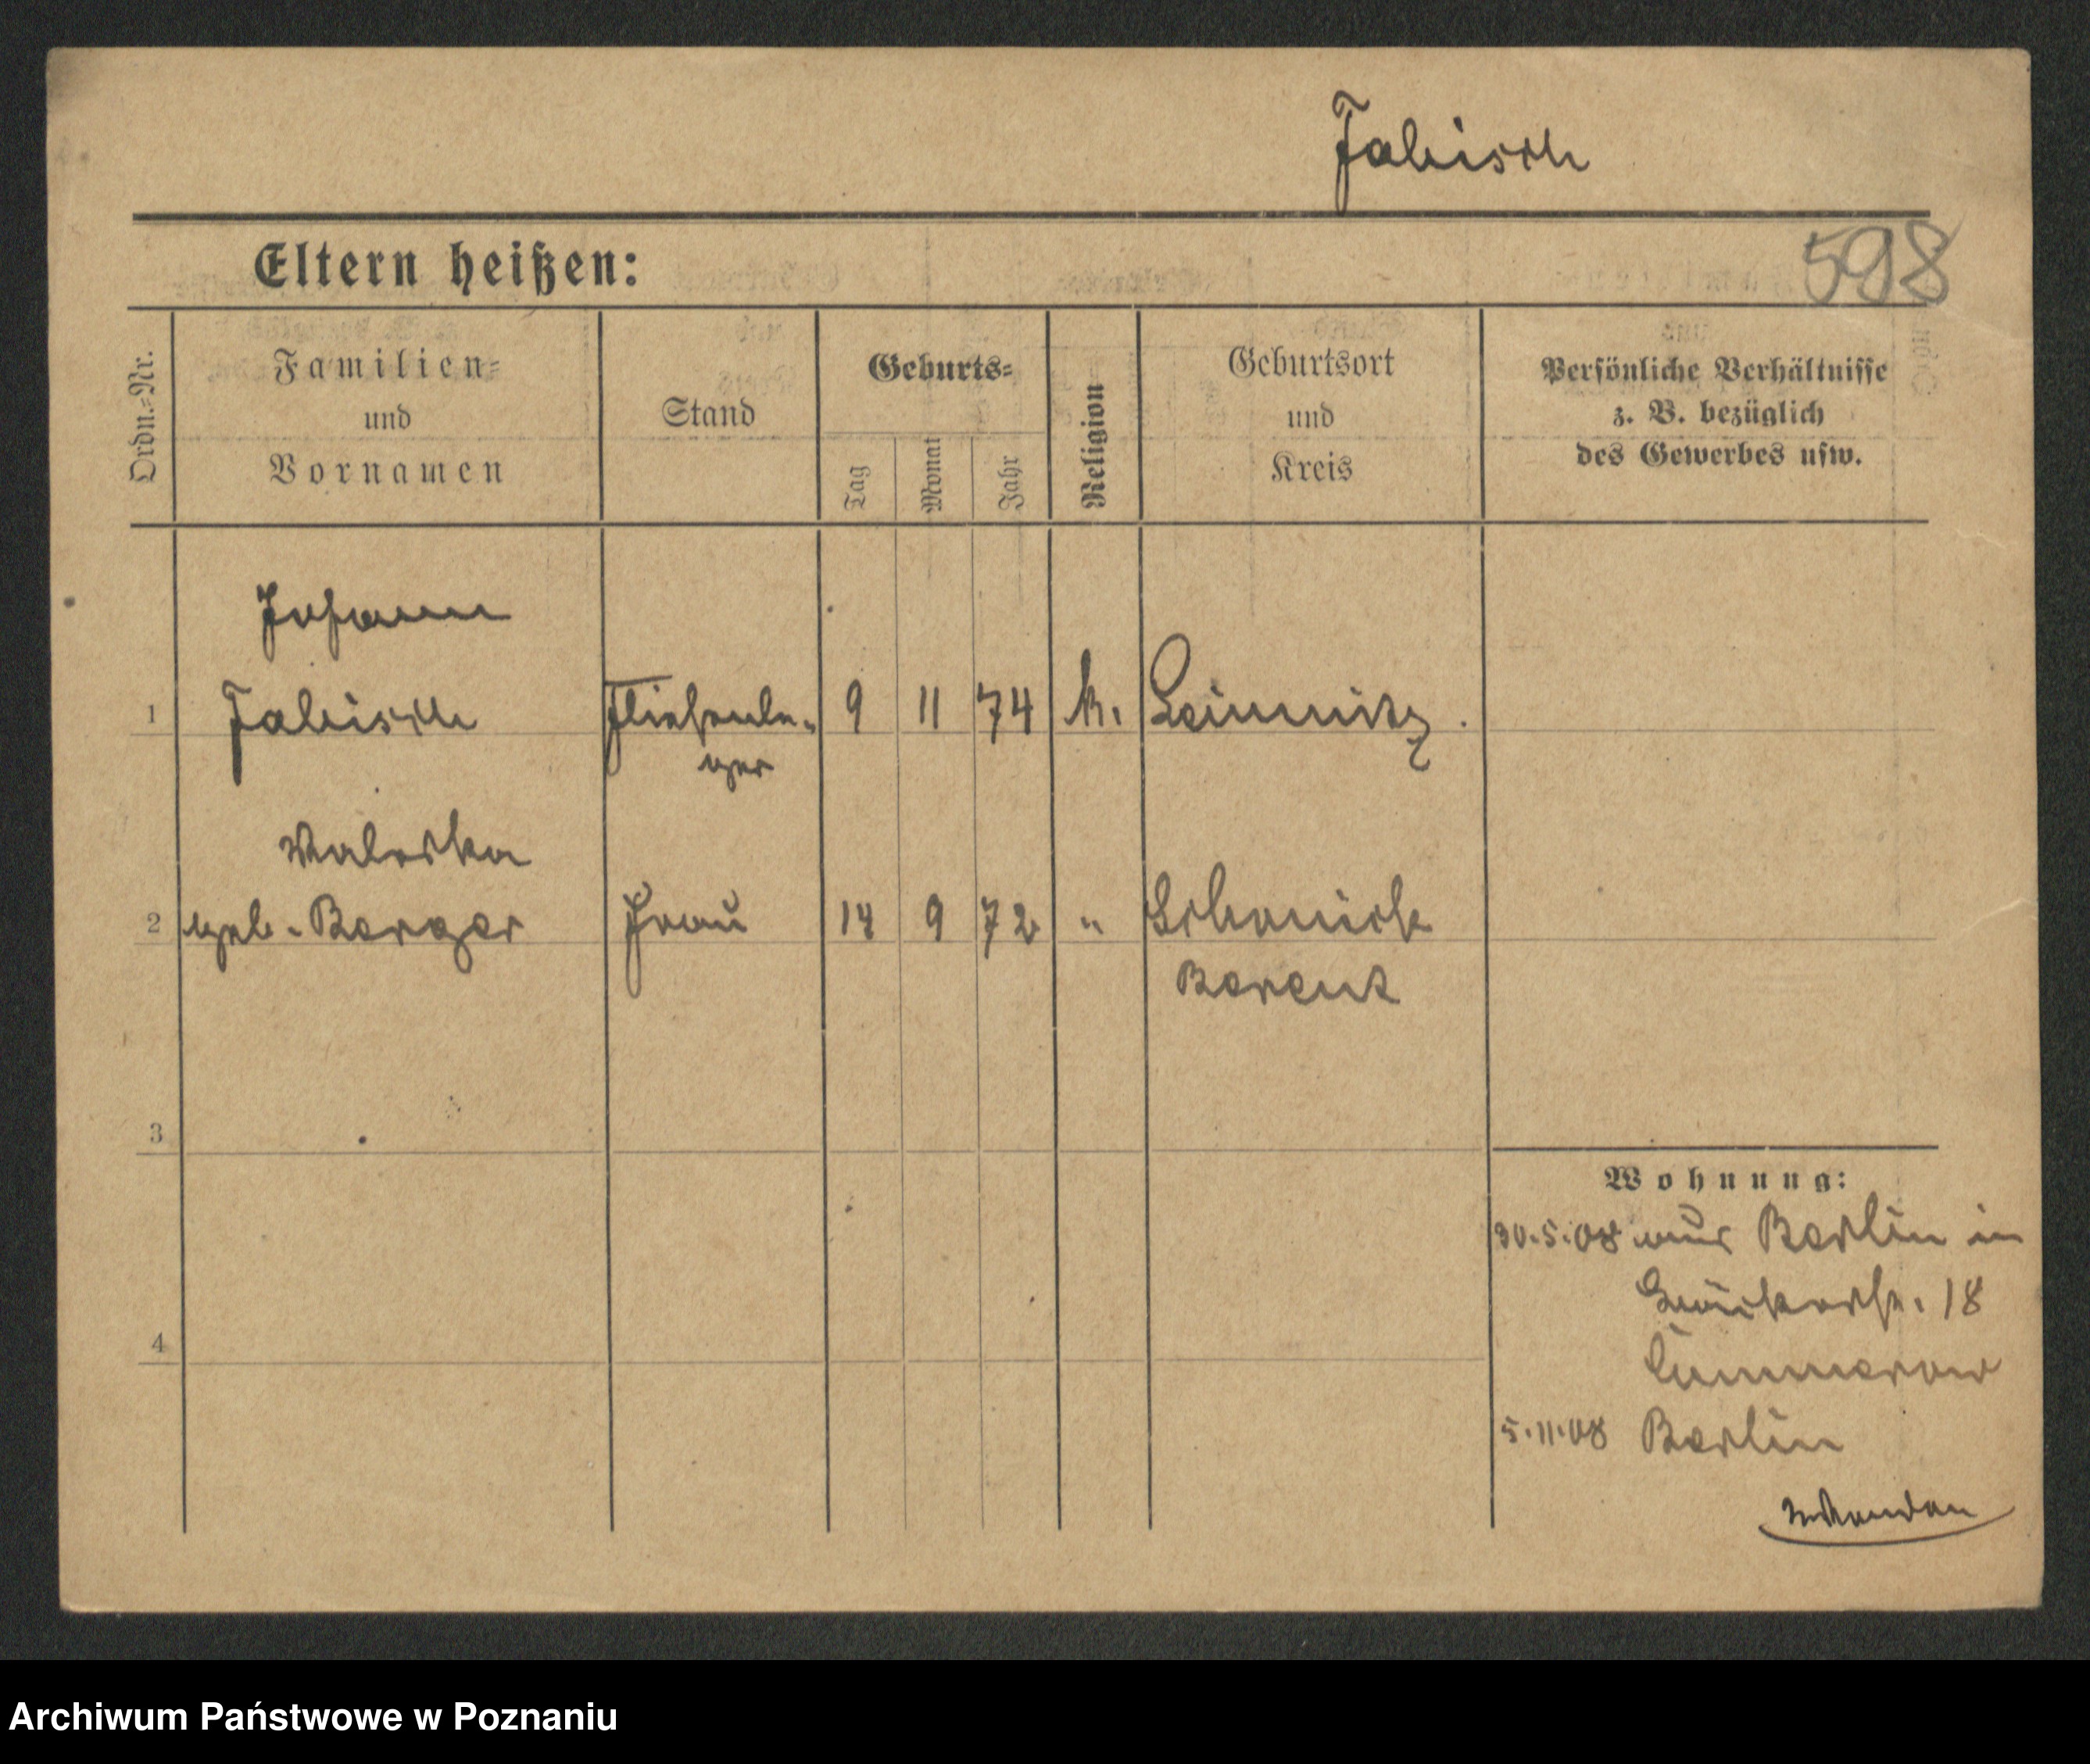 Fabisch
598
Eltern heißen:
Ordn.-Nr.
Familien-
und
Vornamen
Stand
Geburts-
Tag
Monat
Jahr
Religion
Geburtsort
und
Kreis
Persönliche Verhältnisse
z. B. bezüglich
des Gewerbes usw.
Johann
1 Fabisch Fliesenle- 9 11 74 k. Leimnitz
ger
Valeska
2 geb. Berger Frau 14 9 72 "
Berent
3
4
Wohnung:
30.5.08 aus Berlin in
18
5.11.08 Berlin
Archiwum Państwowe w Poznaniu